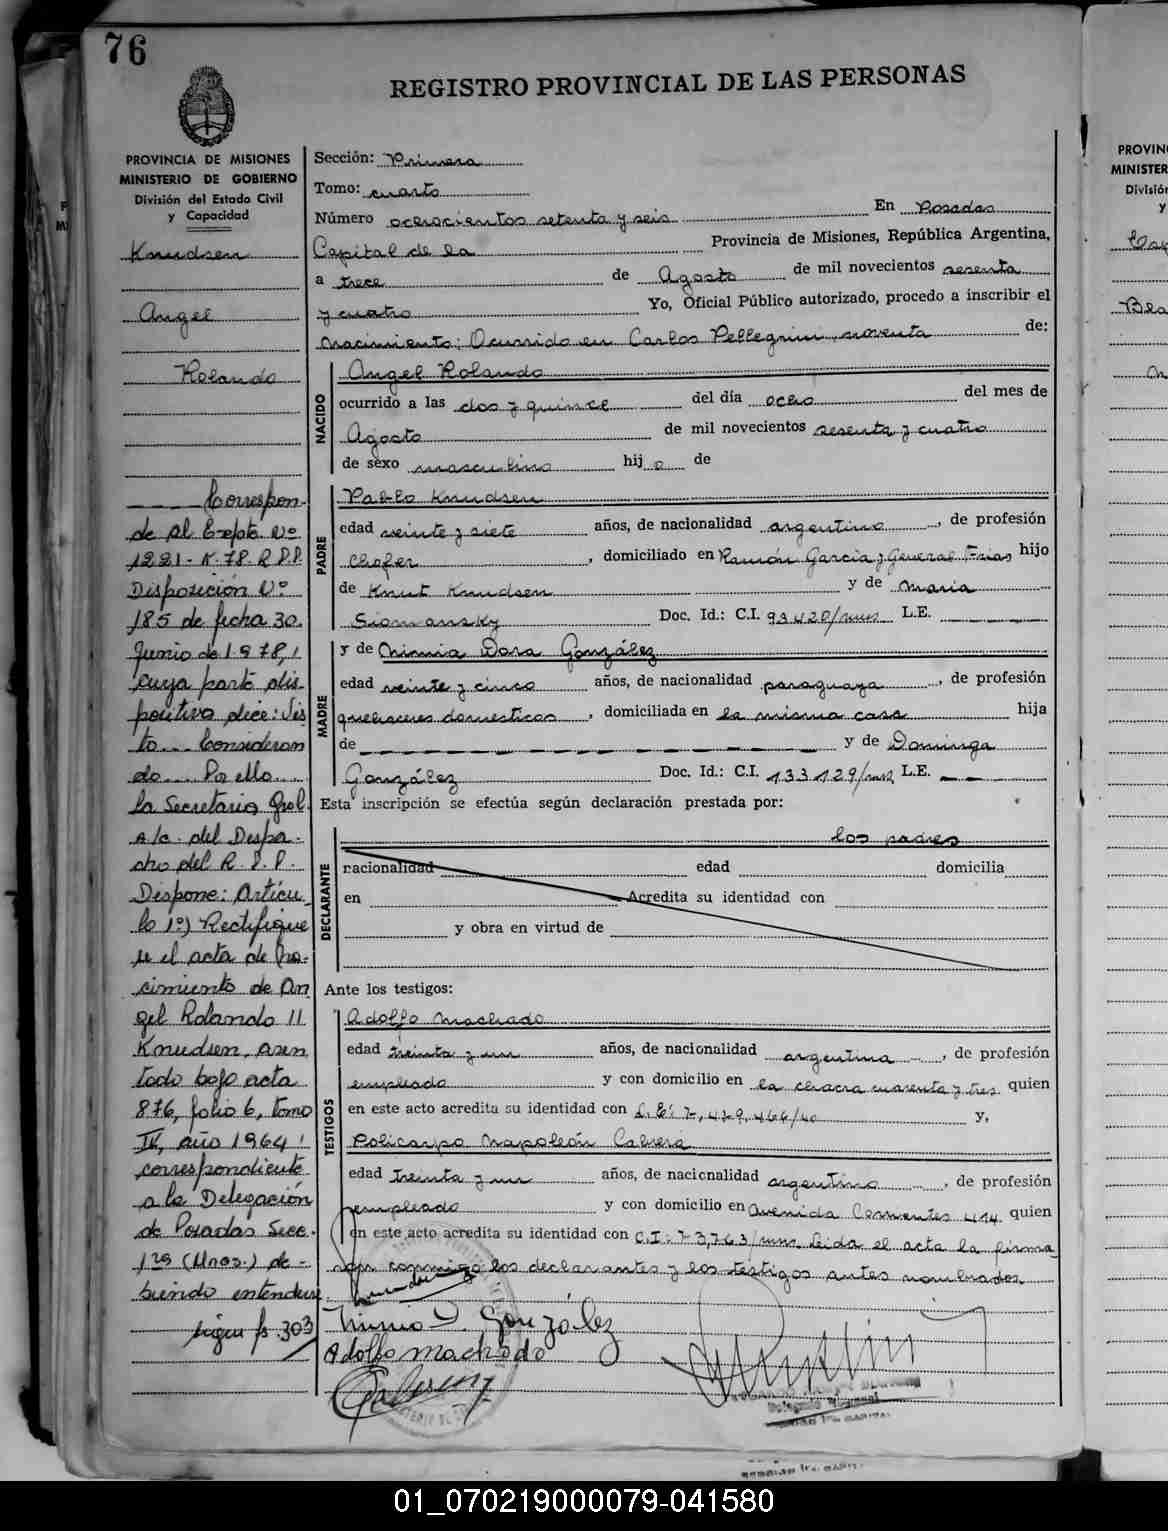 76
REGISTRO PROVINCIAL DE LAS PERSONAS
PROVINCIA DE MISIONES
MINISTERIO DE GOBIERNO
División del Estado Civil
y Capacidad
Knudsen
Angel
Rolando
Correspon-
de al Expte. Nº
1221-K-78-R.P.P.
Disposición Nº
185 de fecha 30.
Junio de 1978,
cuya parte dis-
positiva dice: Vis-
to... Consideran
do.... Por ello....
la Secretaria Gral.
a/c. del Despa-
cho del R.P.P.
Dispone: Artícu
lo 1º) Rectifíque
se el acta de Na-
cimiento de An
gel Rolando
Knudsen, asen
tado bajo acta
876, folio 6, tomo
IV, año 1964
correspondiente
a la Delegación
de Posadas Secc.
1ra (Mnes.) de-
biendo entenderse
sigue fs. 303
Sección: Primera
Tomo: cuarto
Número ochocientos setenta y seis En Posadas
Capital de la Provincia de Misiones, República Argentina,
a trece de Agosto de mil novecientos sesenta
y cuatro Yo, Oficial Público autorizado, procedo a inscribir el
nacimiento: Ocurrido en Carlos Pellegrini, noventa de:
NACIDO
Angel Rolando
ocurrido a las dos y quince del día ocho del mes de
Agosto de mil novecientos sesenta y cuatro
de sexo masculino hijo de
PADRE
Pablo Knudsen
edad veinte y siete años, de nacionalidad argentino, de profesión
chofer, domiciliado en Ramón García y General Frias hijo
de Knut Knudsen y de Maria
Siomansky Doc. Id.: C.I. 93420/mnes L.E.
MADRE
y de Nimia Dora González
edad veinte y cinco años, de nacionalidad paraguaya, de profesión
quehaceres domesticos, domiciliada en la misma casa hija
de y de Dominga
González Doc. Id.: C.I. 133129/mns L.E.
Esta inscripción se efectúa según declaración prestada por:
DECLARANTE
los padres
nacionalidad edad domicilia
en Acredita su identidad con
y obra en virtud de
Ante los testigos:
TESTIGOS
Adolfo Machado
edad treinta y un años, de nacionalidad argentina, de profesión
empleado y con domicilio en la chacra cuarenta y tres quien
en este acto acredita su identidad con L.E: 7,429,466/40 y,
Policarpo Napoleón Cabrera
edad treinta y un años, de nacionalidad argentino, de profesión
empleado y con domicilio en Avenida Corrientes 414 quien
en este acto acredita su identidad con C.I: 73,763/mns. Leida el acta la firma
ron conmigo los declarantes y los testigos antes nombrados
Nimia D. González
Adolfo Machado
Delegado Regional
PROVIN
MINISTER
Divisió
y
01_070219000079-041580